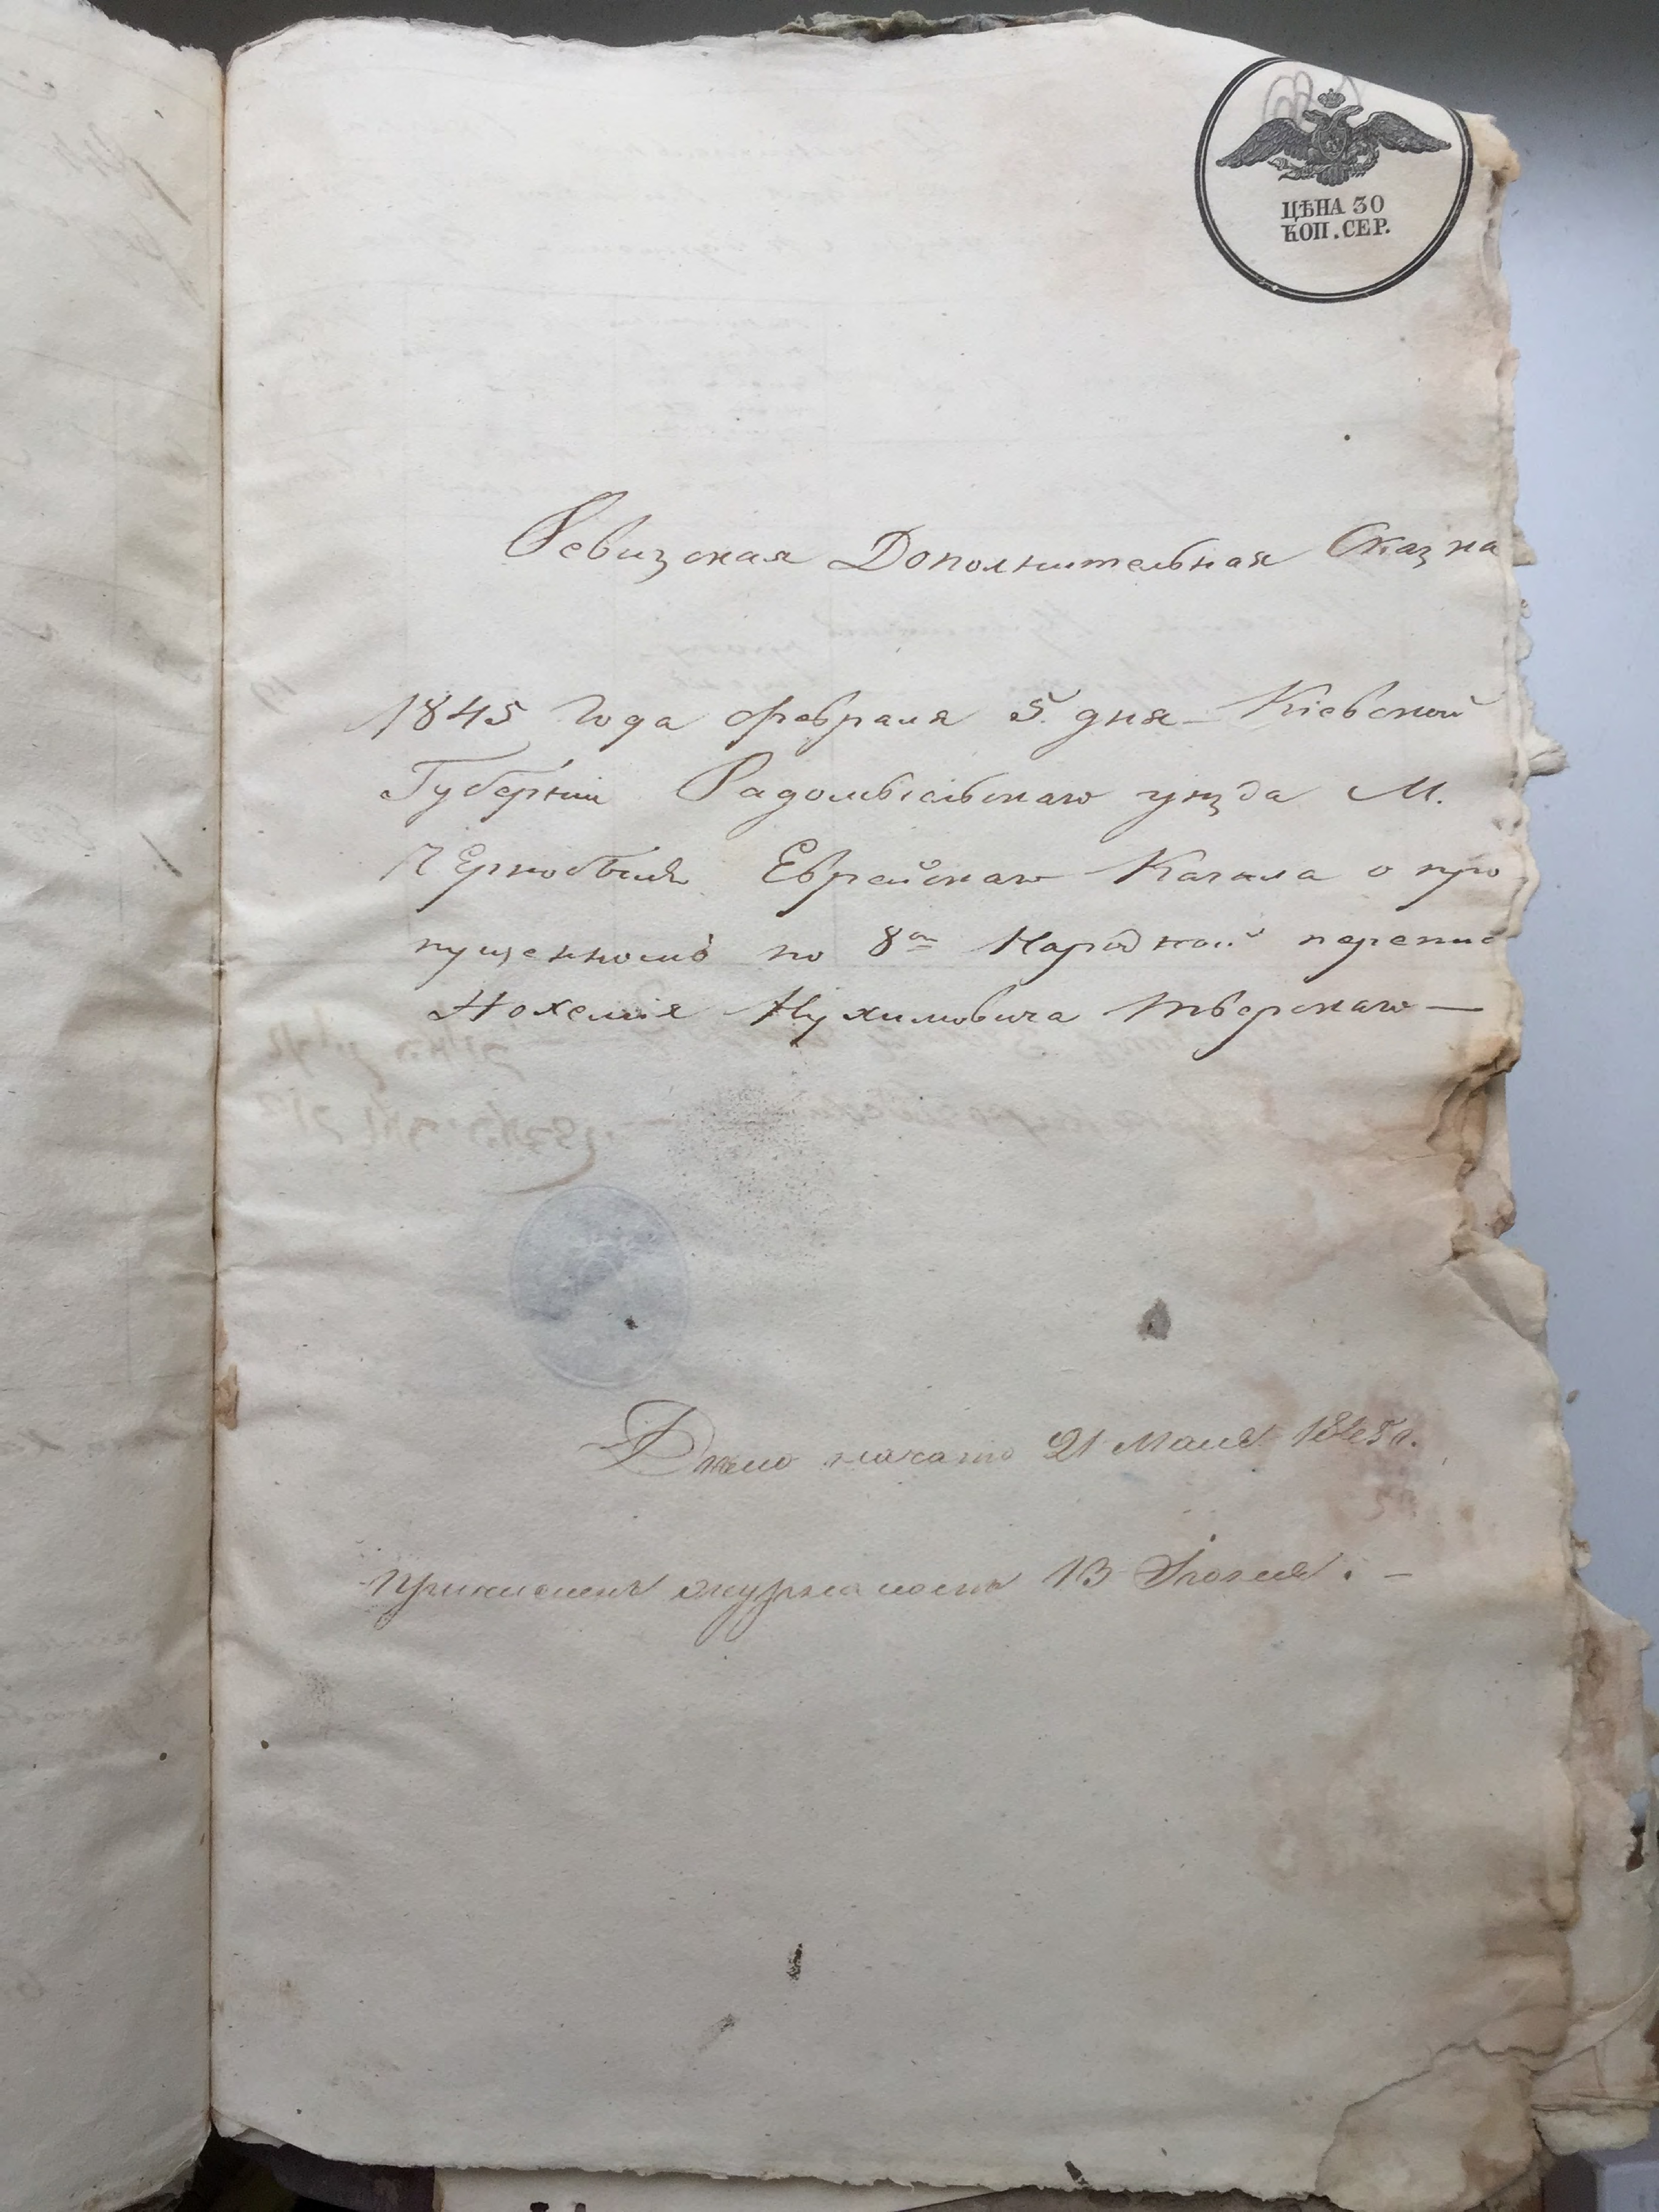 ЦѢНА 30
КОП. СЕР.
Ревизская Дополнительная Сказка
1845 Года февраля 5. дня Кіевской
Губерніи Радомысльскаго уѣзда М.
Чернобыля Еврейскаго Кагала о про
пущенномъ по 8ой Народной перепис
Нохемія Нухимовича Тверскаго —
Дѣло начато 21 Маия 1845 г.
журналомъ 13 Іюния. —